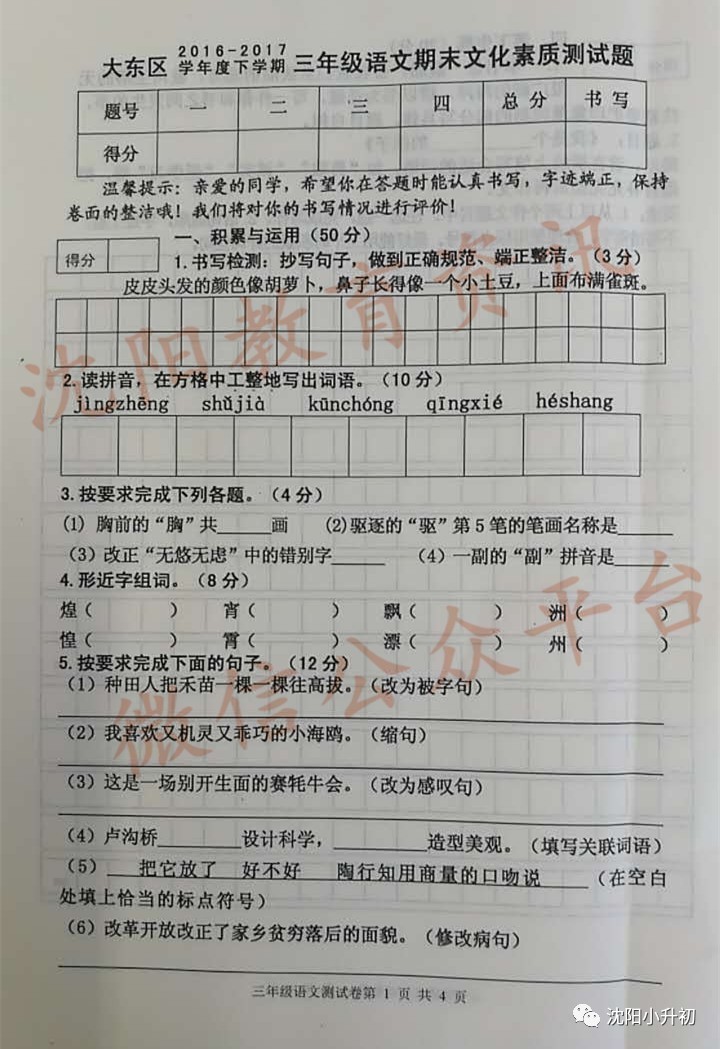 大东区 2016-2017学年度下学期 三年级语文期末文化素质测试题
题号 一 二 三 四 总分 书写
得分
温馨提示：亲爱的同学，希望你在答题时能认真书写，字迹端正，保持
卷面的整洁哦！我们将对你的书写情况进行评价！
得分
一、积累与运用（50分）
1.书写检测：抄写句子，做到正确规范、端正整洁。（3分）
皮皮头发的颜色像胡萝卜，鼻子长得像一个小土豆，上面布满雀斑。
2.读拼音，在方格中工整地写出词语。（10分）
jìngzhēng shǔjià kūnchóng qīngxié héshang
3.按要求完成下列各题。（4分）
(1) 胸前的“胸”共____画 (2)驱逐的“驱”第5笔的笔画名称是____
（3）改正“无悠无虑”中的错别字____ （4）一副的“副”拼音是____
4.形近字组词。（8分）
煌（ ） 宵（ ） 飘（ ） 洲（ ）
惶（ ） 霄（ ） 漂（ ） 州（ ）
5.按要求完成下面的句子。（12分）
（1）种田人把禾苗一棵一棵往高拔。（改为被字句）
（2）我喜欢又机灵又乖巧的小海鸥。（缩句）
（3）这是一场别开生面的赛牦牛会。（改为感叹句）
（4）卢沟桥______设计科学，______造型美观。（填写关联词语）
（5）__把它放了__好不好__陶行知用商量的口吻说____（在空白
处填上恰当的标点符号）
（6）改革开放改正了家乡贫穷落后的面貌。（修改病句）
三年级语文测试卷第 1 页 共 4 页
沈阳教育资讯
微信公众平台
沈阳小升初